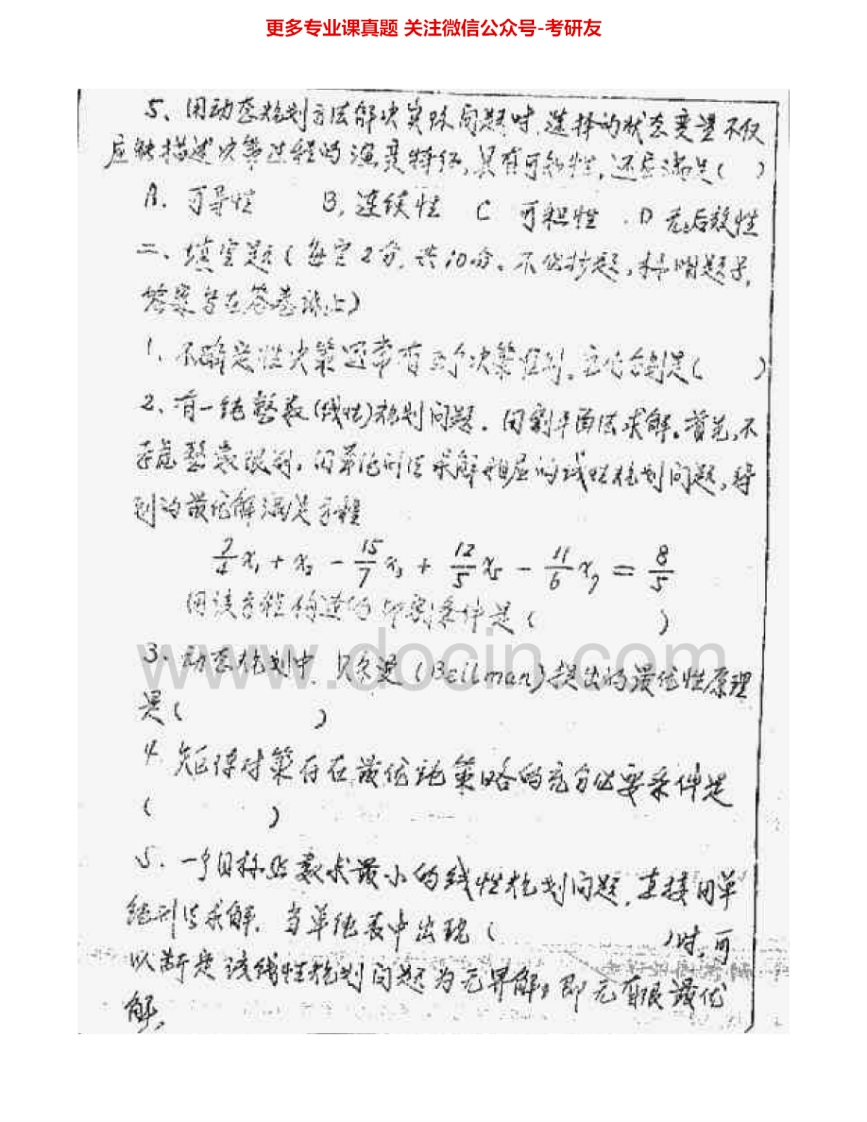 更多专业课真题 关注微信公众号-考研友
5、用动态规划方法解决实际问题时,选择的状态变量不仅
应能描述决策过程的演变特征,具有可知性,还应满足( )
A. 可导性 B. 连续性 C 可积性 . D 无后效性
二、填空题(每空2分,共10分。不必抄题,标明题号,
答案写在答卷纸上)
1、不确定性决策通常有五个决策准则。它们分别是( )
2、有一纯整数(线性)规划问题.用割平面法求解。首先,不
考虑整数限制,用单纯形法求解相应的线性规划问题,得
到的最优解满足方程
7/4 x₁ + x₂ - 15/7 x₃ + 12/5 x₅ - 11/6 x₇ = 8/5
用该方程构造的切割条件是( )
www.docin.com
3、动态规划中,贝尔曼(Bellman)提出的最优性原理
是( )
4 矩阵对策存在最优纯策略的充分必要条件是
( )
5、一个目标函数求最小的线性规划问题,直接用单
纯形法求解.当单纯表中出现( )时,可
以断定该线性规划问题为无界解,即无有限最优
解。